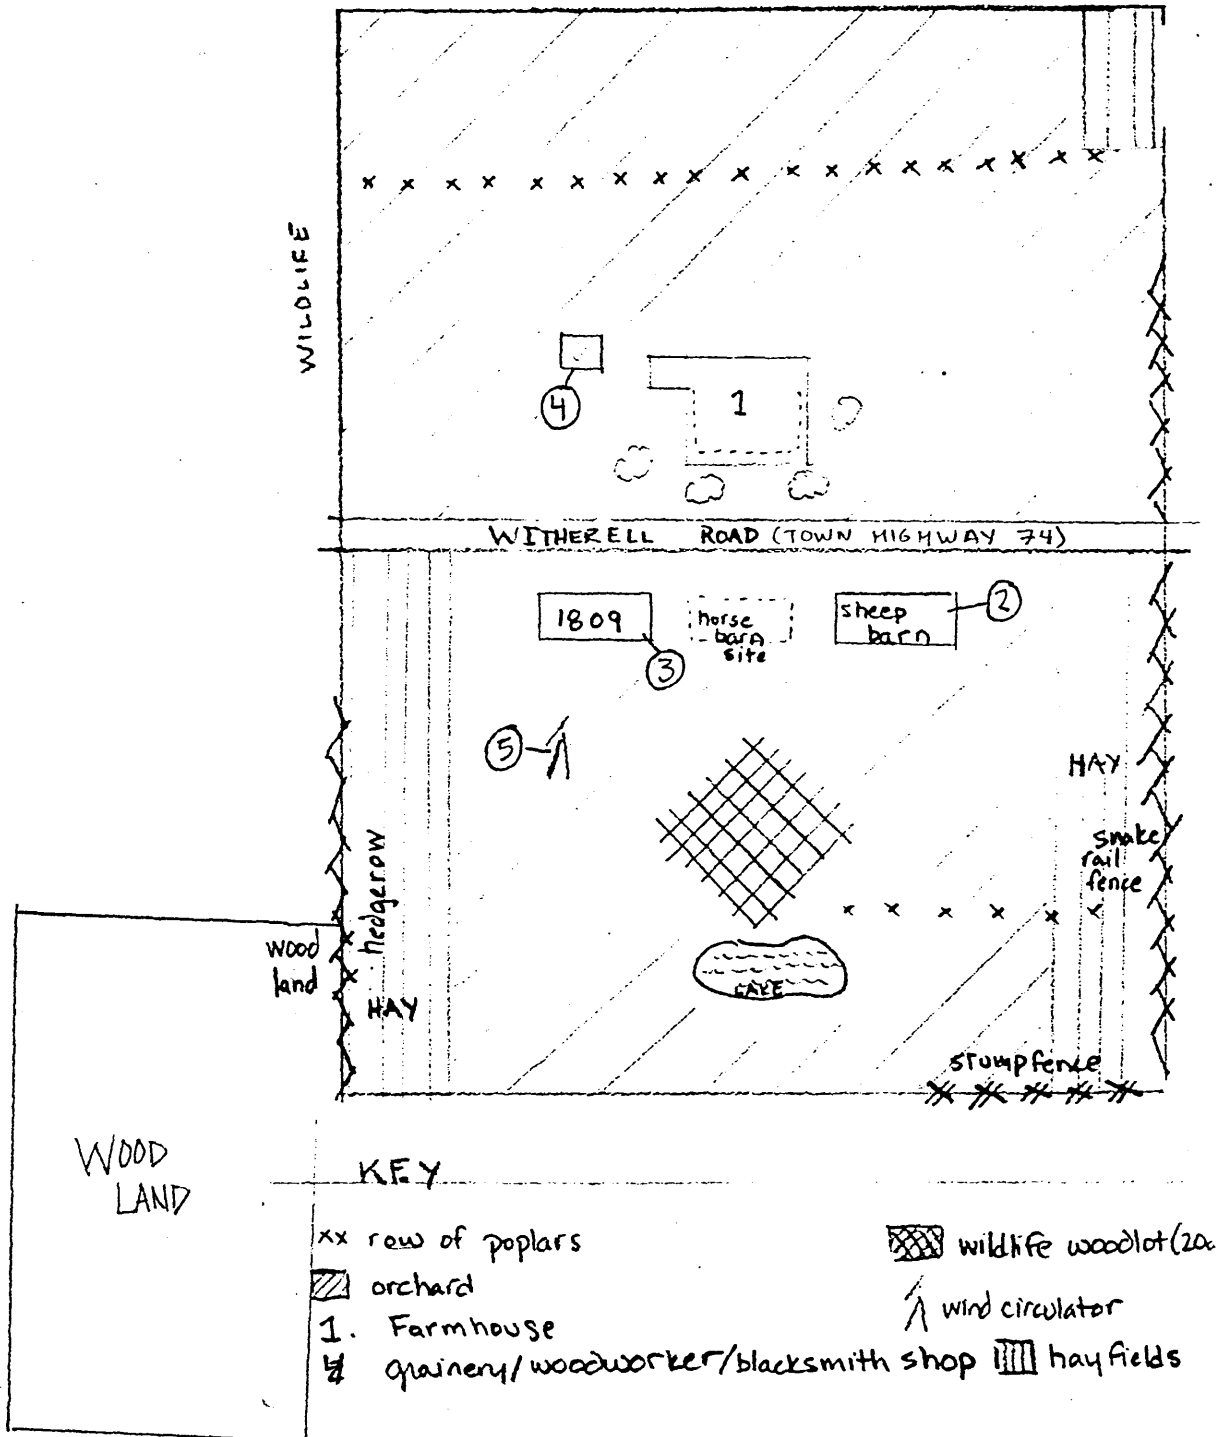 WILDLIFE
4
1
WITHERELL ROAD (TOWN HIGHWAY 74)
1809
horse
barn
site
sheep
barn
2
3
5
HAY
snake
rail
fence
hedgerow
wood
land
HAY
LAKE
stump fence
WOOD
LAND
KEY
xx row of poplars
orchard
1. Farmhouse
4 grainery/woodworker/blacksmith shop
wildlife woodlot (20
wind circulator
hayfields